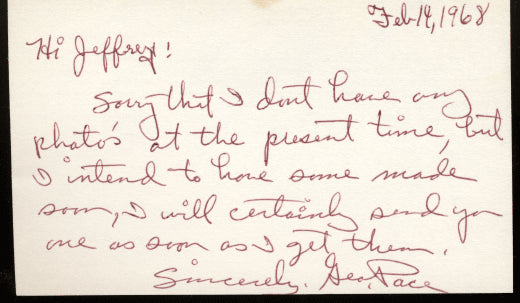 Feb 14, 1968
Hi Jeffrey!
Sorry that I dont have any
photo's at the present time, but
I intend to have some made
soon, I will certainly send you
one as soon as I get them.
Sincerely, Geo. Pace